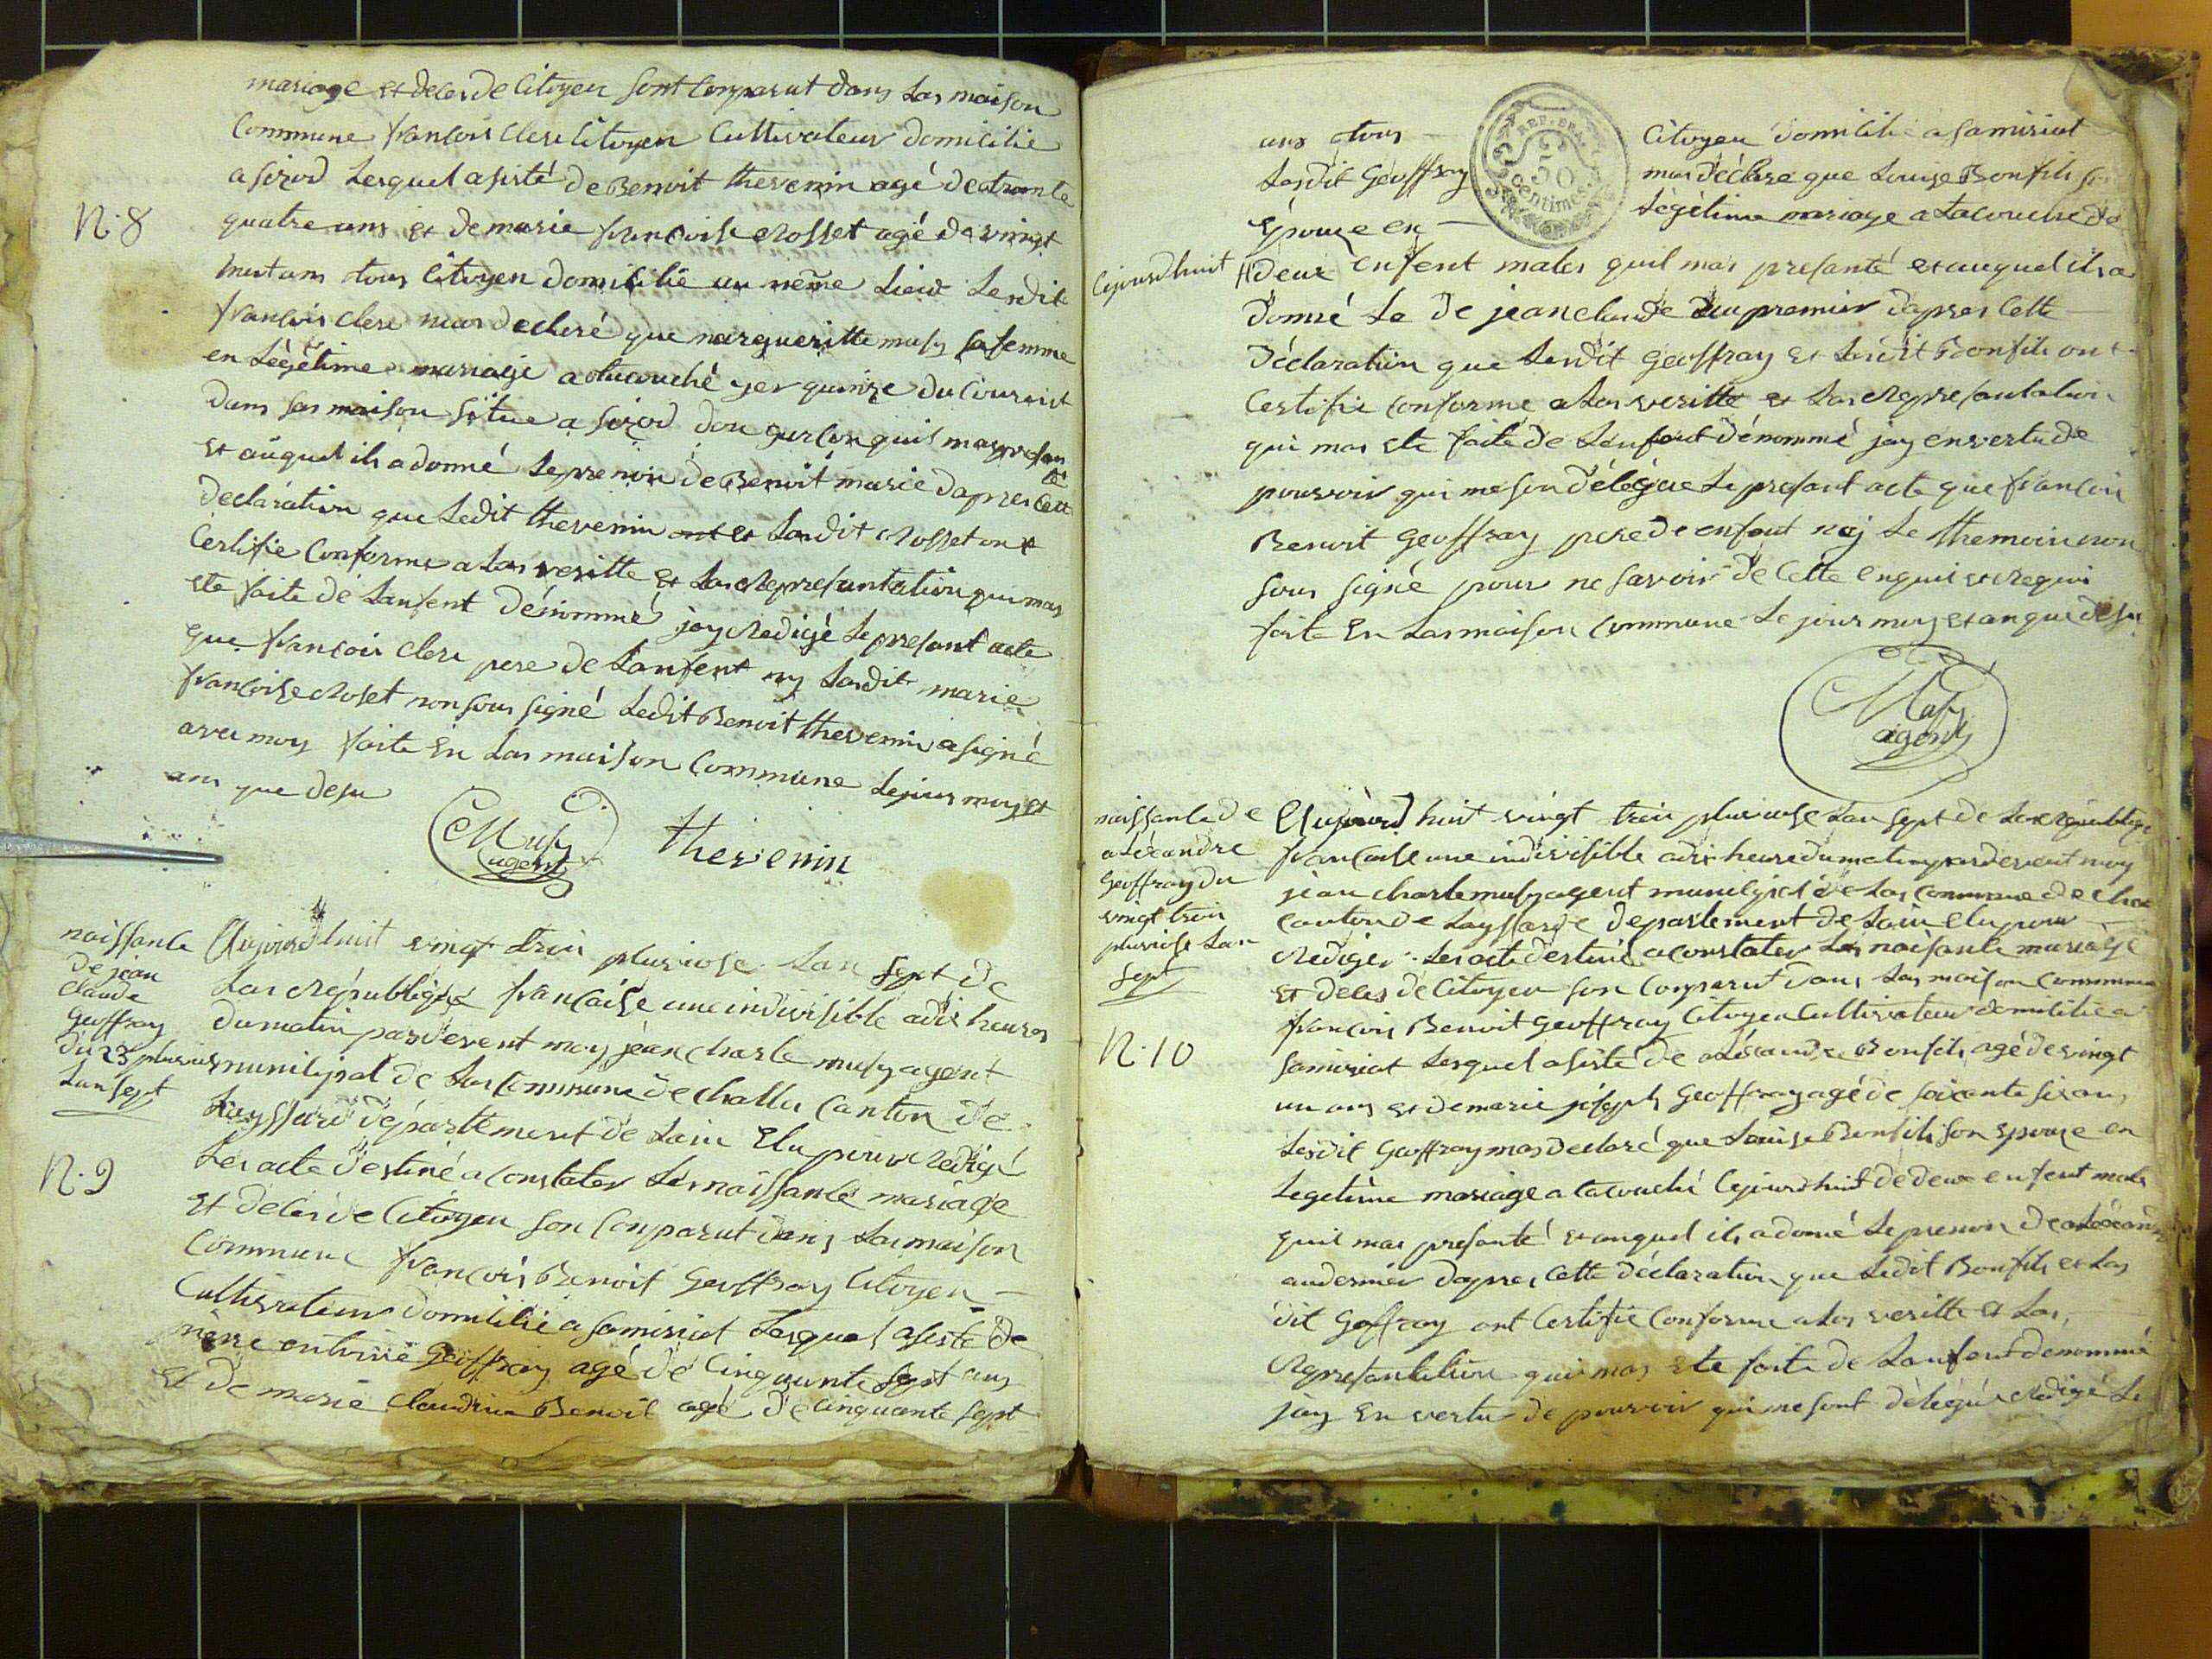 mariage et deces de Citoyen sont Comparut dans Las maison
Commune francois Clerc Citoyen Cultivateur domicilié
a sirod Lesquel asisté de Benoit thevenin agé de trante
N. 8
quatre ans et de marie francoise Rosset agé de vingt
huit ans tous Citoyen domicilié au même Lieux Lesdit
francois clerc mas declaré que margueritte musy sa femme
en Légétime mariage a acouché yer quinze du Courant
dans sas maison situe a sirod don garcon quil mas presan
té
et auquel ils a donné Le prenom de Benoit marie dapres Cette
declaration que Ledit thevenin et Lasdit Rosset ont
Certifie Conforme a Las veritte et Las Represantation qui mas
ete faite de Lanfent dénommé jay Redigé Le presant acte
que francois clerc pere de Lanfent ny Lasdit marie
francoise Roset non sous signé Ledit Benoit thevenin a signé
avec moy faite En Las maison Commune Le jour moy et
ans que desu
Musy
agent
thevenin
naissance
de jean
claude
Geoffray
du 23 pluvios
Lan sept
N. 9
Aujourdhuit vingt troi pluviose Lan sept de
Las République francaise une indivisible a dix heures
du matin pardevent moy jean charle musy agent
municipal de Las Commune de challes Canton de
Leyssard département de Lain Elu pour Redigé
Les acte destiné a Constater Les naissance mariage
et deces de Citoyen son Comparut dans Las maison
Commune francois Benoit Geoffray Citoyen
Cultivateur domicilié a samiriat Lesquel asisté de
piere entoine Geoffray agé de Cinquante sept ans
Et de marie Claudine Benoit agé de cinquante sept
REP. FRA.
50
Centimes.
ans tous Citoyen domicilié a samiriat
Lesdit Geoffray mas déclare que Louise Bonfils son
Épouze en Légétime mariage a Lacouche de
Cejourdhuit
deux enfent males quil mas presanté et auquel ils a
donné Le de jean claude au premier dapres Cette
Déclaration que Lesdit Geoffray et Lesdit Bonfils ont
Certifie Conforme a Las veritte et Las Represantation
qui mas ete faite de Lenfant dénommé jay en vertu de
pouvoir qui me son délégue Le presant acte que francois
Benoit Geoffray pere de enfant nÿ Le themoin non
sous signé pour ne savoir de Cette enquis et Requi
faite En Las maison Commune Le jour moy et an que desu
Musy
agent
naissance de
aléxandre
Geoffray du
vingt troi
pluviose Lan
sept
N. 10
Aujourdhuit vingt troi pluviose Lan sept de Las République
francaise une indivisible a dix heure du matin pardevent moy
jean charle musy agent municipal de Las Commune de chal
canton de Layssard département de Lain elu pour
Rediger Les acte destiné a constater Les naisance mariage
Et deces de Citoyen son Comparut dans Las maison Commune
francois Benoit Geoffray Citoyen Cultivateur domicilié a
samiriat Lesquel asisté de aléxandre Bonfils agé de vingt
un ans et de marie joseph Geoffray agé de soixante six ans
Lesdit Geoffray mas declaré que Louise Bonfils son Epouze en
Legetime mariage a Lacouché Cejourdhuit de deux enfent males
quil mas presanté et auquel ils a donné Le prenom de aléxandre
au dernier dapres Cette déclaration que Ledit Bonfils et Las
dit Geoffray ont Certifié Conforme a Las veritte et Las
Represantation qui mas ete faite de Lanfent denommé
jay En vertu de pouvoir qui me sont délégué Redigé Le